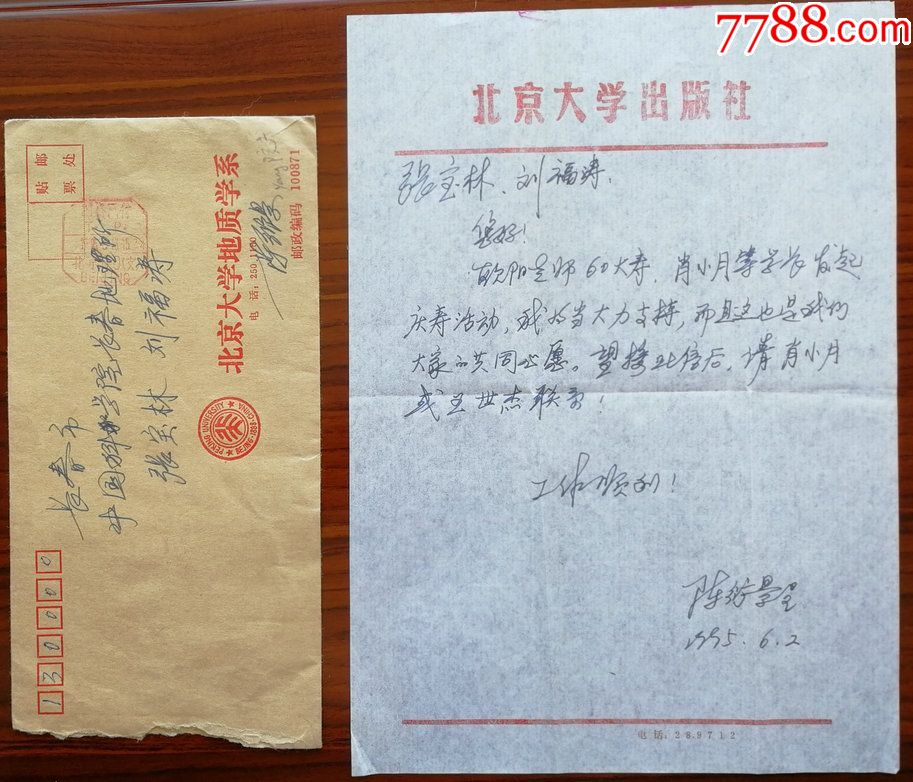 7788.com
北京大学出版社
张宝林、刘福涛:
您好!
欧阳老师60大寿,肖小月等学长发起
庆寿活动,我们当大力支持,而且这也是我们
大家的共同心愿。望接此信后,请肖小月
或王世杰联系!
工作顺利!
陈衍景
1995.6.2
电话:289712
贴邮
票处
北京大学地质学系
电话:250
陈衍景
邮政编码 100871
PEKING UNIVERSITY
长春市
中国科学院长春地理所
张宝林 刘福涛
130000